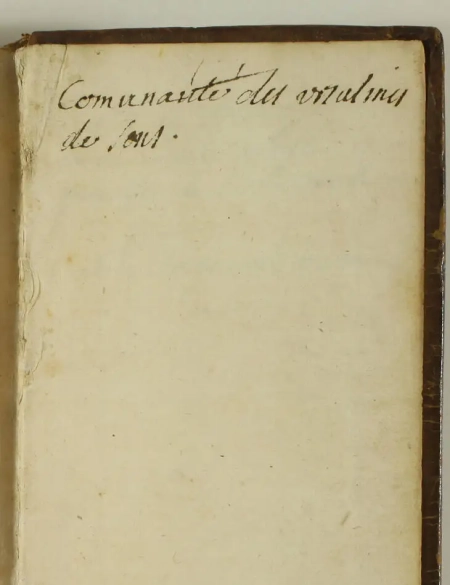 Comunauté des vrsulines
de sens.